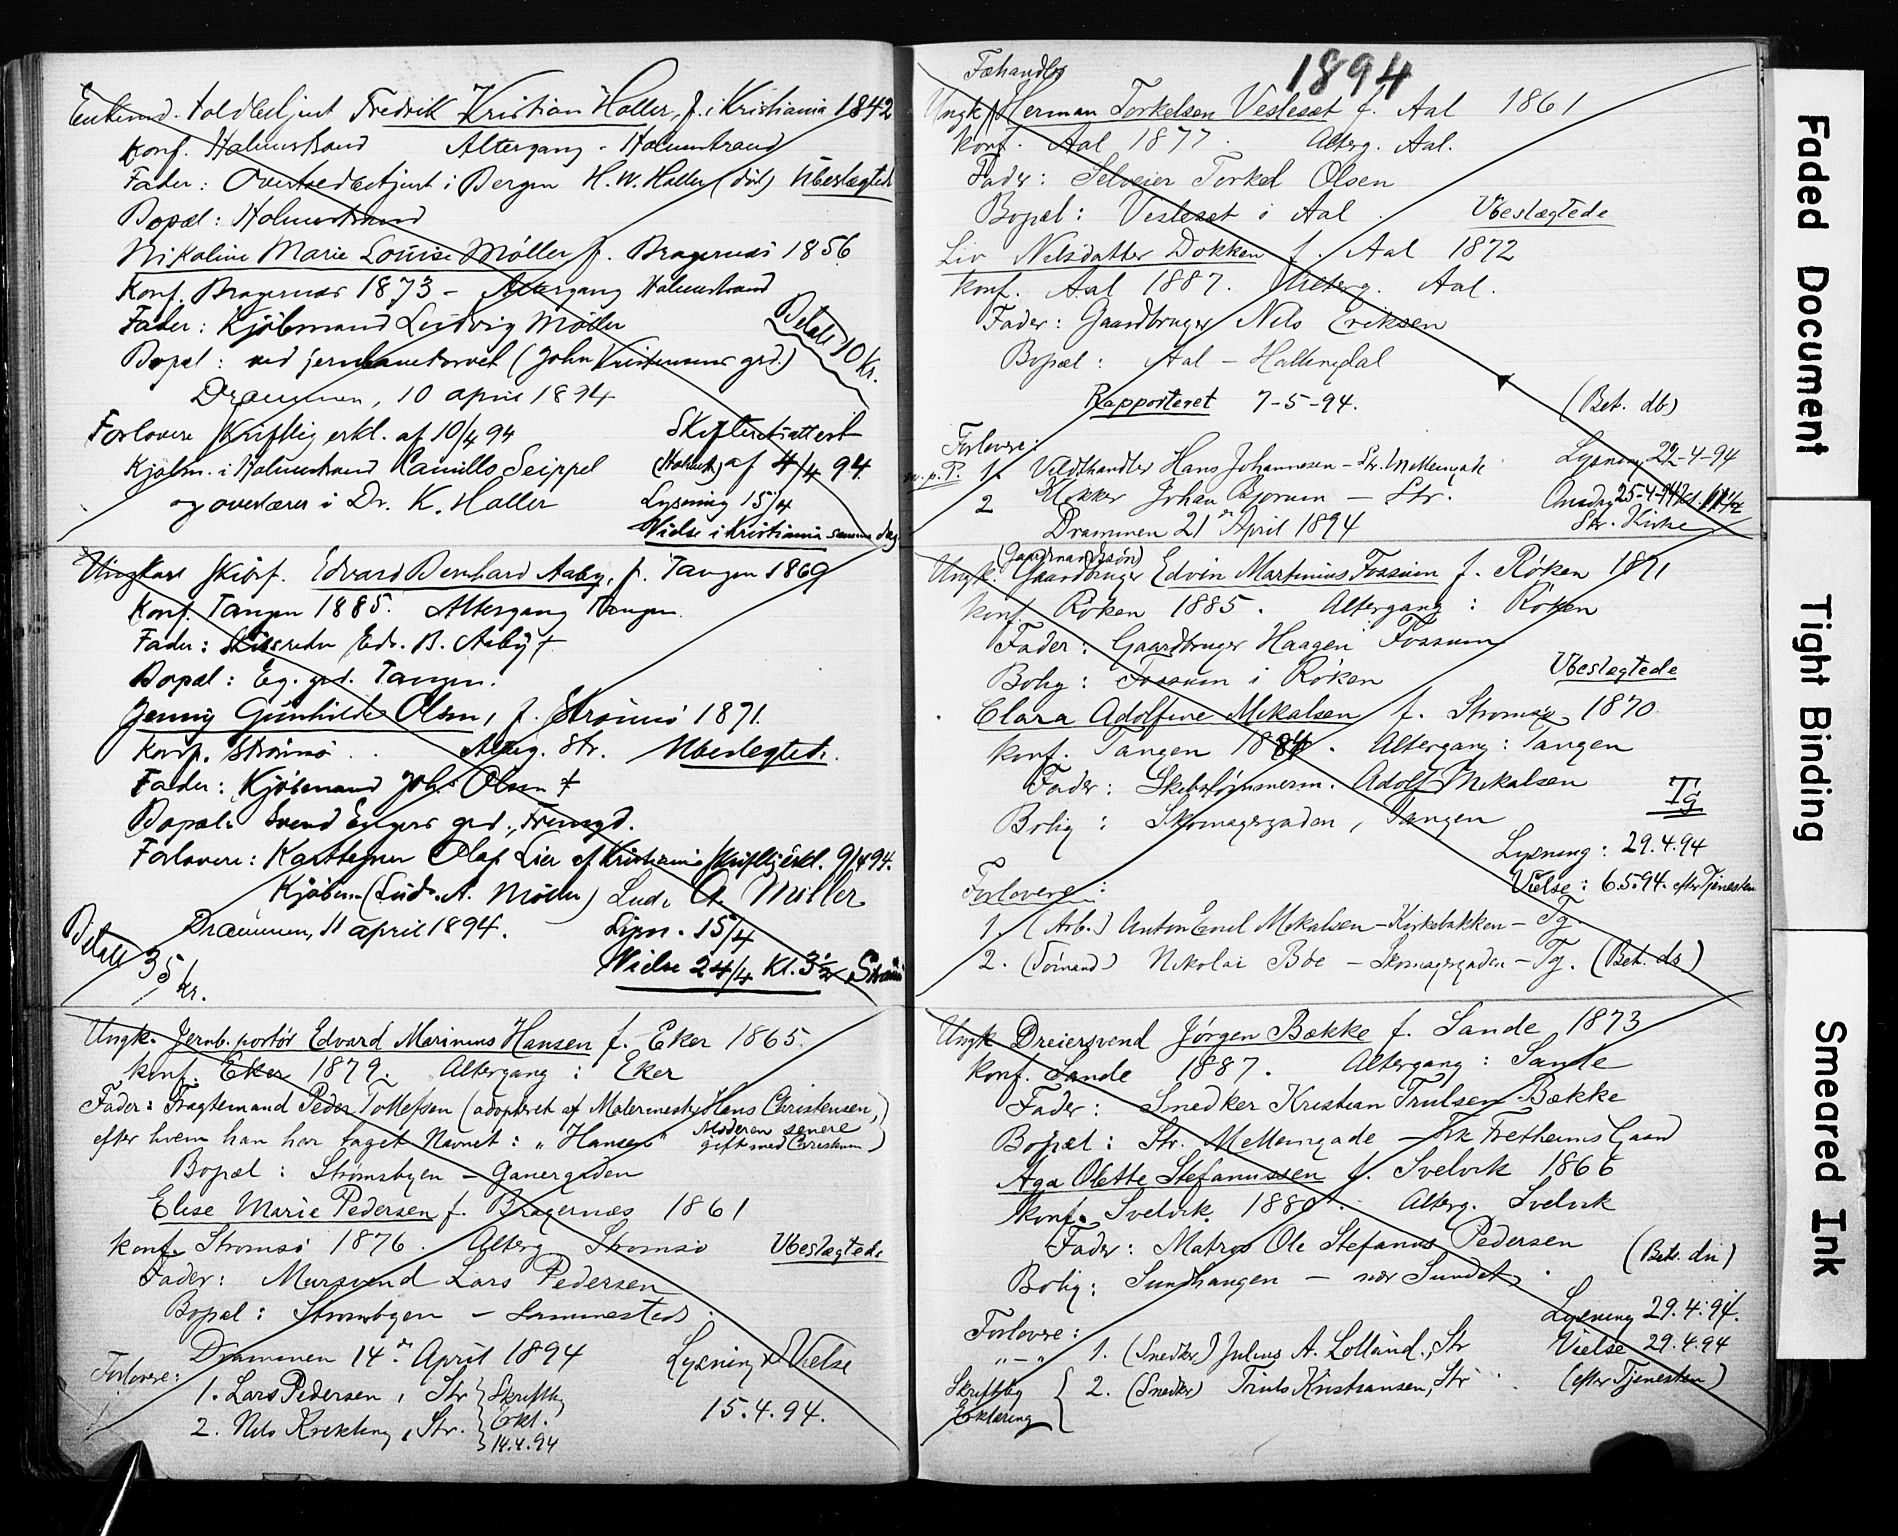 Enkemd. Toldbetjent Fredrik Kristian Holler, f. i Kristiania 1842
Konf. Holmestrand Altergang - Holmestrand
Fader: Overtoldbetjent i Bergen H. W. Holler (död) Ubeslægtede
Bopæl: Holmestrand
Nikoline Marie Louise Møller f. Bragernæs 1856
Konf. Bragernæs 1873 - Altergang Holmestrand
Fader: Kjøbmand Ludvig Møller
Betalt 10 kr.
Bopæl: ved jernbanetorvet (John Kristensens grd.)
Drammen, 10 april 1894
Forlovere skriftlig erkl. af 10/4 94
Skifteretsattest
Kjøbm. i Holmestrand Camillo Seippel
(Holmestr.) af 4/4 94.
og overlærer i Dr. K. Holler
Lysning 15/4
Vielse i Kristiania samme dag
Ungkarl Edvard Bernhard Aaby, f. Tangen 1869
Konf. Tangen 1885. Altergang Tangen.
Fader: Skibsreder Edv. B. Aaby †
Bopæl: Eg. grd. Tangen.
Jenny Gunhilde Olsen, f. Strømsø 1871.
Konf. Strømsø. Alterg. Str. Ubeslegtede.
Fader: Kjøbmand Joh. Olsen †
Bopæl: Svend Engers grd.,
Forlovere: Karttegner Olaf Lier af Kristiania skriftlig erkl. 9/4 94.
Kjøbm. (Ludv. A. Møller) Ludv. A. Müller
Drammen, 11 april 1894.
Lysn. 15/4
Betalt 35 kr.
Vielse 24/4 Kl. 3½ Strømsø
Ungk. Jernb. portør Edvard Marinius Hansen f. Eker 1865.
Konf. Eker 1879. Altergang: Eker
Fader: Fragtemand Peder Tollefsen (adopteret af Malermester Hans Christensen,
efter hvem han har taget Navnet: "Hansen" Moderen senere gift med Christensen)
Bopæl: Strømsbyen - Ganergaden
Elise Marie Pedersen f. Bragernæs 1861
Konf. Strømsø 1876. Alterg. Strømsø Ubeslægtede
Fader: Mursvend Lars Pedersen
Bopæl: Strømsbyen - sammesteds.
Drammen 14de April 1894
Lysning & Vielse
Forlovere:
1. Lars Pedersen, Str
2. Nils Krekling, Str.
Skriftlig Erkl. 14.4.94
15.4.94.
1894
Fæhandler
Ungk. Herman Torkelsen Vesleset f. Aal 1861
Konf. Aal 1877. Alterg. Aal.
Fader: Selveier Torkel Olsen
Bopæl: Vesleset i Aal. Ubeslægtede
Liv Nilsdatter Dokken f. Aal 1872
Konf. Aal 1887. Alterg. Aal.
Fader: Gaardbruger Nils Eriksen
Bopæl: Aal - Hallingdal
Rapporteret 7-5-94.
(Bet. db)
Forlovere:
m.p.P. 1. Vildthandler Hans Johannesen - Str. Mellemgade
Lysning 22-4-94
2 Klokker Johan Bjørum - Str.
Onsdag 25-4-94 kl. 11½
Drammen 21de April 1894
Str. Kirke
(Gaardmandssøn)
Ungk. Gaardbruger Edvin Martinius Fossum f. Røken 1871
Konf. Røken 1885. Altergang: Røken
Fader: Gaardbruger Haagen Fossum
Bolig: Fossum i Røken
Ubeslegtede
Clara Adolfine Mikalsen f. Strømsø 1870.
Konf. Tangen 1884. Altergang: Tangen
Fader: Skibstømmerm. Adolf Mikalsen
Tg
Bolig: Skomagergaden, Tangen
Lysning: 29.4.94
Vielse: 6.5.94. efter Tjenesten
Forlovere:
1. (Arb.) Anton Emil Mikalsen - Kirkebakken - Tg.
2. (Sømand) Nikolai Boe - Skomagergaden - Tg. (Bet. ds)
Ungk Dreiersvend Jørgen Bække f. Sande 1873
Konf. Sande 1887. Altergang: Sande
Fader: Snedker Kristian Trulsen Bække
Bopæl: Str. Mellemgade - Fretheims Gaard
Aga Olette Stefanussen f. Svelvik 1866
Konf. Svelvik. 1880. Alterg. Svelvik
Fader: Matros Ole Stefanus Pedersen
(Bet. dn)
Bolig: Sundhaugen - nær Sundet.
Lysning 29.4.94.
Forlovere:
Vielse 29.4.94
" - " 1. (Snedker) Julius A. Lolland, Str
(efter Tjenesten)
Skriftlig Erklæring
2. (Snedker) Truls Kristiansen, Str
Faded Document
Tight Binding
Smeared Ink